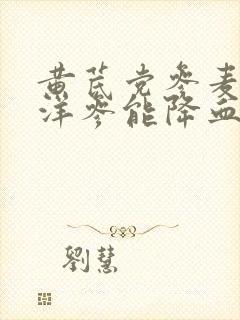 黄芪党参麦
洋参能降血
劉慧